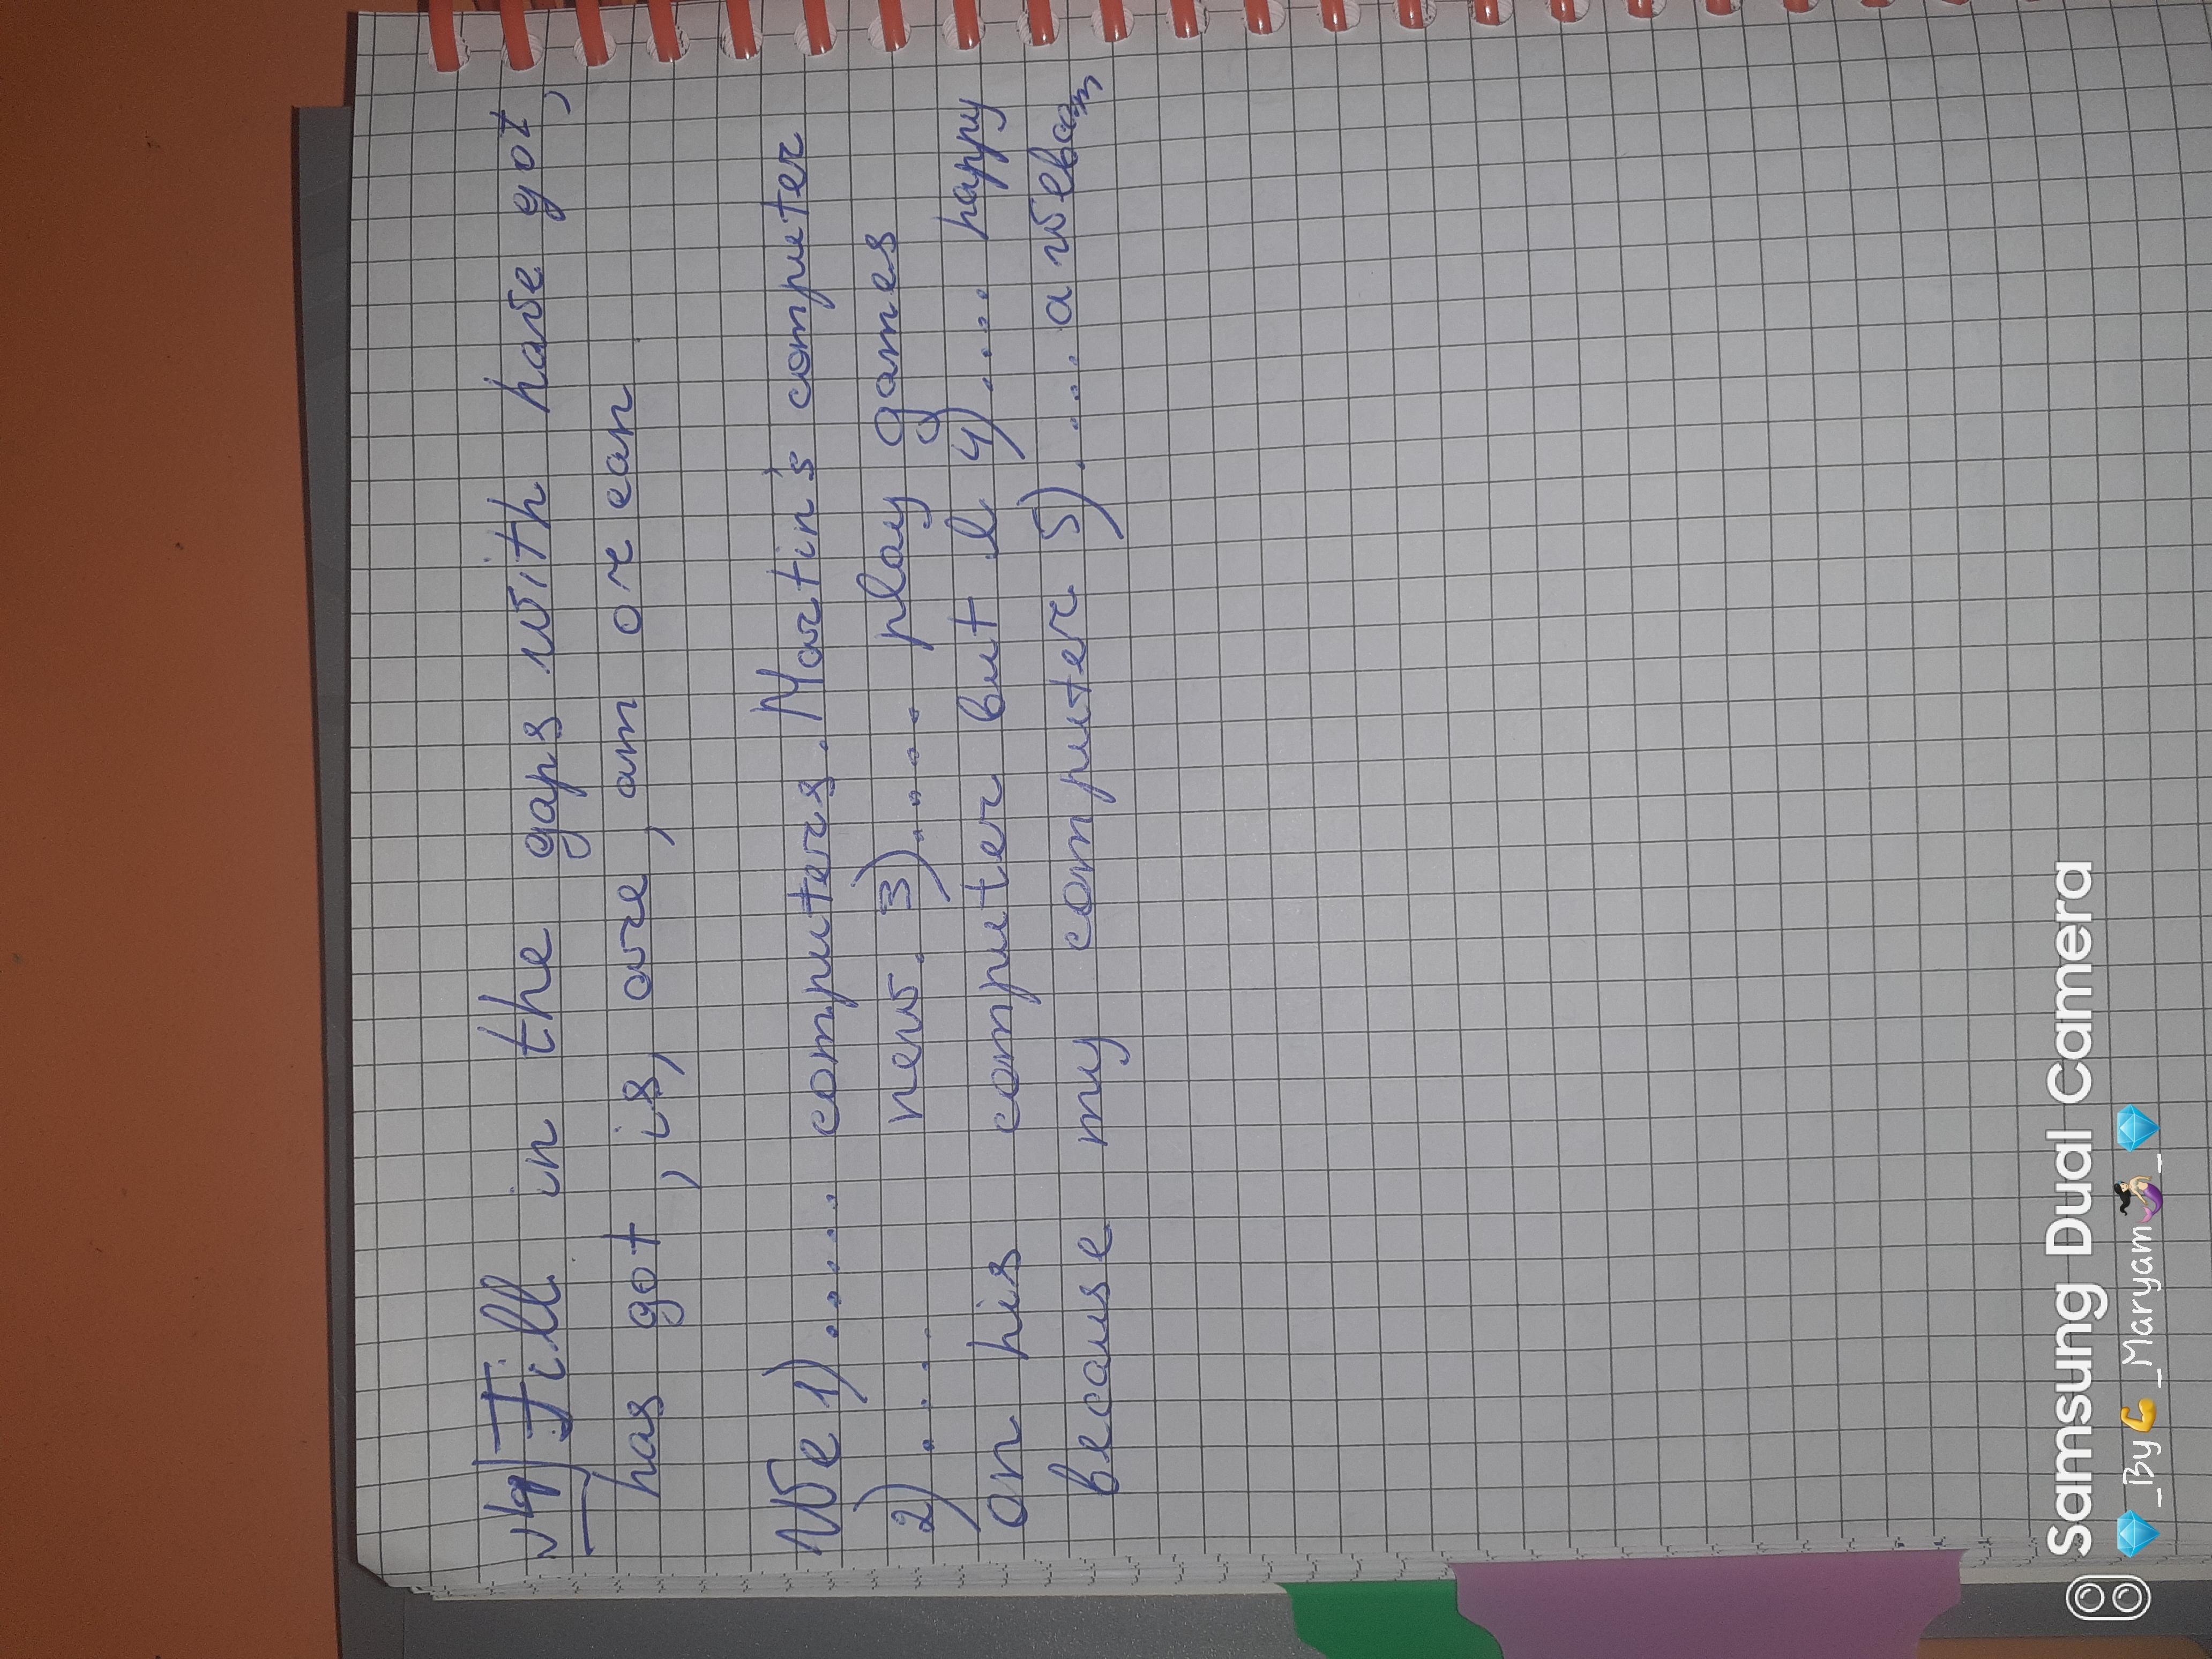 №4 Fill in the gaps with have got,
has got, is, are, am or can
We 1)...... computers. Martin's computer
2)..... new. 3)...... play games
on his computer but I 4)..... happy
because my computer 5)..... a webcam
Samsung Dual Camera
💎_By💪_Maryam🧜🏻‍♀️_💎